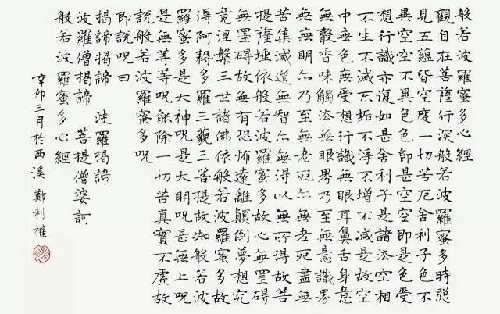 般若波羅蜜多心經
觀自在菩薩行深般若波羅蜜多時照
見五蘊皆空度一切苦厄舍利子色不
異空空不異色色即是空空即是色受
想行識亦復如是舍利子是諸法空相
不生不滅不垢不淨不增不減是故空
中無色無受想行識無眼耳鼻舌身意
無色聲香味觸法無眼界乃至無意識界
無無明亦無無明盡乃至無老死亦無老死盡
無苦集滅道無智亦無得以無所得故菩
提薩埵依般若波羅蜜多故心無罣礙
無罣礙故無有恐怖遠離顛倒夢想究
竟涅槃三世諸佛依般若波羅蜜多故
得阿耨多羅三藐三菩提故知般若波
羅蜜多是大神呪是大明呪是無上呪
是無等等呪能除一切苦真實不虛故
說般若波羅蜜多呪
即說呪曰
揭諦揭諦 波羅揭諦
波羅僧揭諦 菩提僧婆訶
般若波羅蜜多心經
辛卯三月於西溪 鄭利權